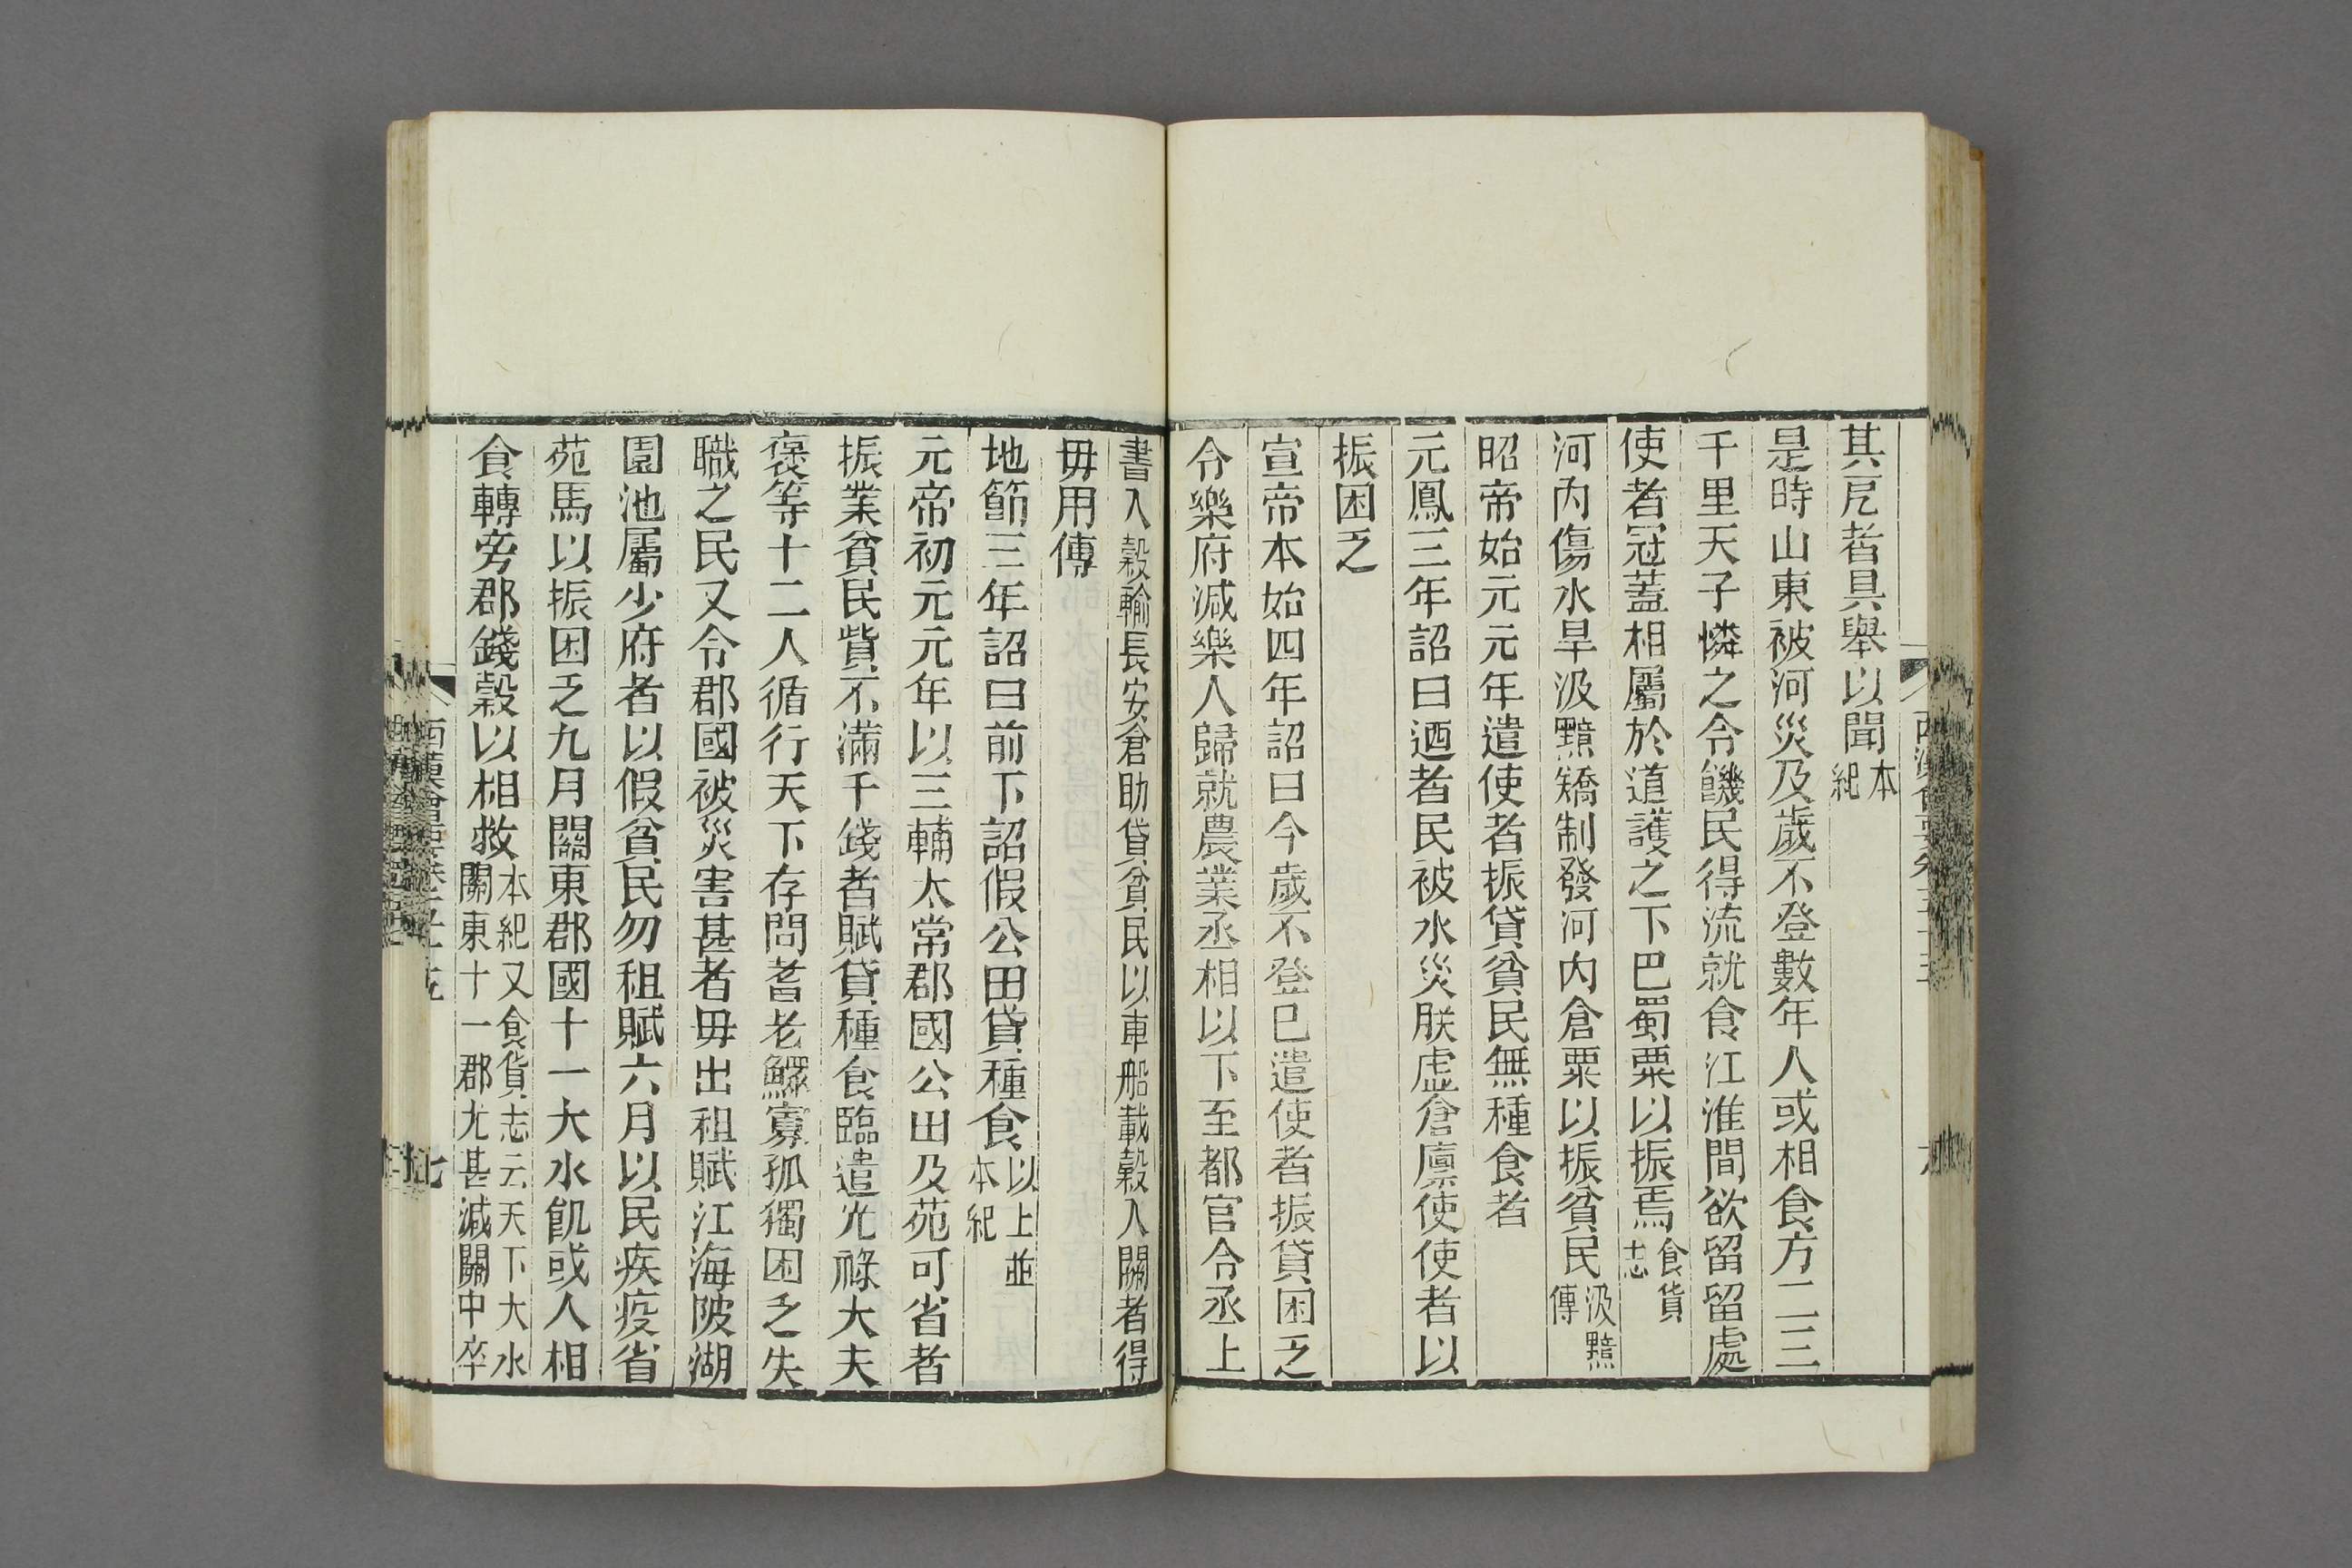 其戹者具舉以聞本紀
是時山東被河災及歲不登數年人或相食方二三
千里天子憐之令饑民得流就食江淮間欲留留處
使者冠蓋相屬於道護之下巴蜀粟以振焉食貨志
河內傷水旱汲黯矯制發河內倉粟以振貧民汲黯傳
昭帝始元元年遣使者振貸貧民無種食者
元鳳三年詔曰迺者民被水災朕虛倉廩使使者以
振困乏
宣帝本始四年詔曰今歲不登已遣使者振貸困乏
令樂府減樂人歸就農業丞相以下至都官令丞上
書入穀輸長安倉助貸貧民以車船載穀入關者得
毋用傳
地節三年詔曰前下詔假公田貸種食以上並本紀
元帝初元元年以三輔太常郡國公田及苑可省者
振業貧民貲不滿千錢者賦貸種食臨遣光祿大夫
褒等十二人循行天下存問耆老鰥寡孤獨困乏失
職之民又令郡國被災害甚者毋出租賦江海陂湖
園池屬少府者以假貧民勿租賦六月以民疾疫省
苑馬以振困乏九月關東郡國十一大水飢或人相
食轉旁郡錢穀以相救本紀又食貨志云天下大水關東十一郡尤甚減關中卒
七